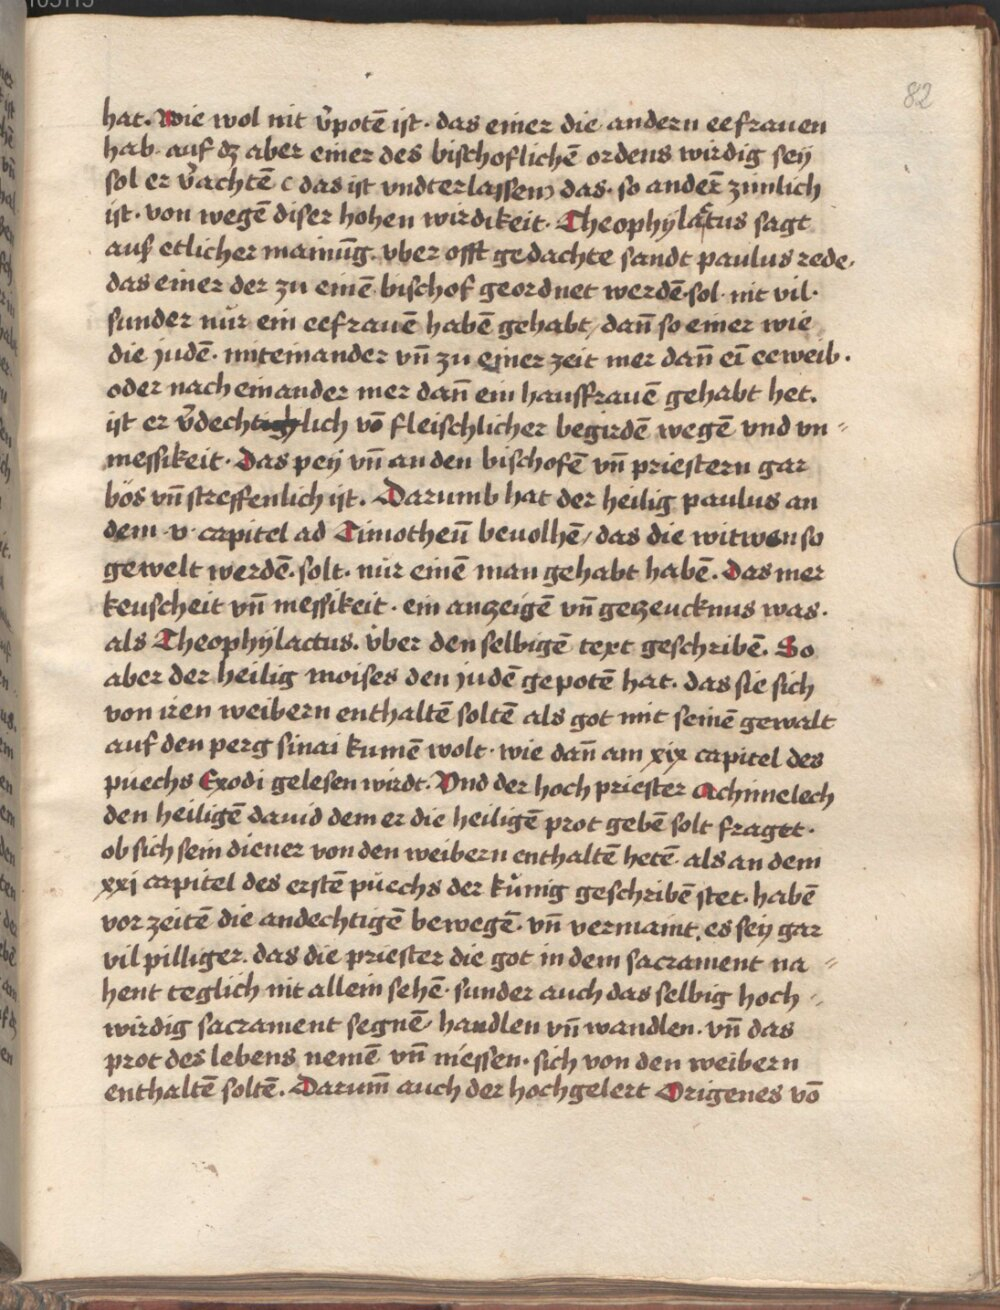 82
hat. Wie wol nit v̄potē ist. das einer die andern eefrauen
hab. auf dz aber einer des bischoflichē ordens wirdig sey
sol er v̄achtē ( das ist vndterlassen) das. so anderē zimlich
ist. von wegē diser hohen wirdikeit. Theophylactus sagt
auß etlicher mainūg. vber offt gedachte sandt paulus rede.
das einer der zu einē bischof geordnet werdē. sol. nit vil.
sunder nůr ein eefrauē habē gehabt / dañ so einer wie
die judē. miteinander vñ zu einer zeit mer dañ eī eeweib.
oder nach einander mer dañ ein hausfrauē gehabt het.
ist er v̄dechtlich vō fleischlicher begirdē wegē vnd vn=
messikeit. Das pey vñ an den bischofē vñ priestern gar
bös vñ streffenlich ist. Darumb hat der heilig paulus an
dem .v. capitel ad Timotheū beuolhē / das die witwen so
gewelt werdē. solt. nůr einē man gehabt habē. Das mer
keuscheit vñ messikeit. ein anzeigē vñ gezeucknus was.
als Theophylactus. v̊ber den selbigē text geschribē. So
aber der heilig moises den judē gepotē hat. das sie sich
von iren weibern enthaltē soltē als got mit seinē gewalt
auf den perg sinai kumē wolt. wie dañ am xix capitel des
puechs Exodi gelesen wirdt. Vnd der hoch priester Achimelech
den heiligē dauid dem er die heiligē prot gebē solt fraget.
ob sich sein diener von den weibern enthaltē hetē. als an dem
xxj capitel des erstē půechs der kůnig geschribē stet. habē
vor zeitē die andechtigē bewegē. vñ vermaint, es sey gar
vil pilliger. das die priester die got in dem sacrament na=
hent teglich nit allein sehē. sunder auch das selbig hoch=
wirdig sacrament segnē / handlen vñ wandlen. vñ das
prot des lebens nemē vñ niessen. sich von den weibern
enthaltē soltē. Darum̄ auch der hochgelert Origenes vō